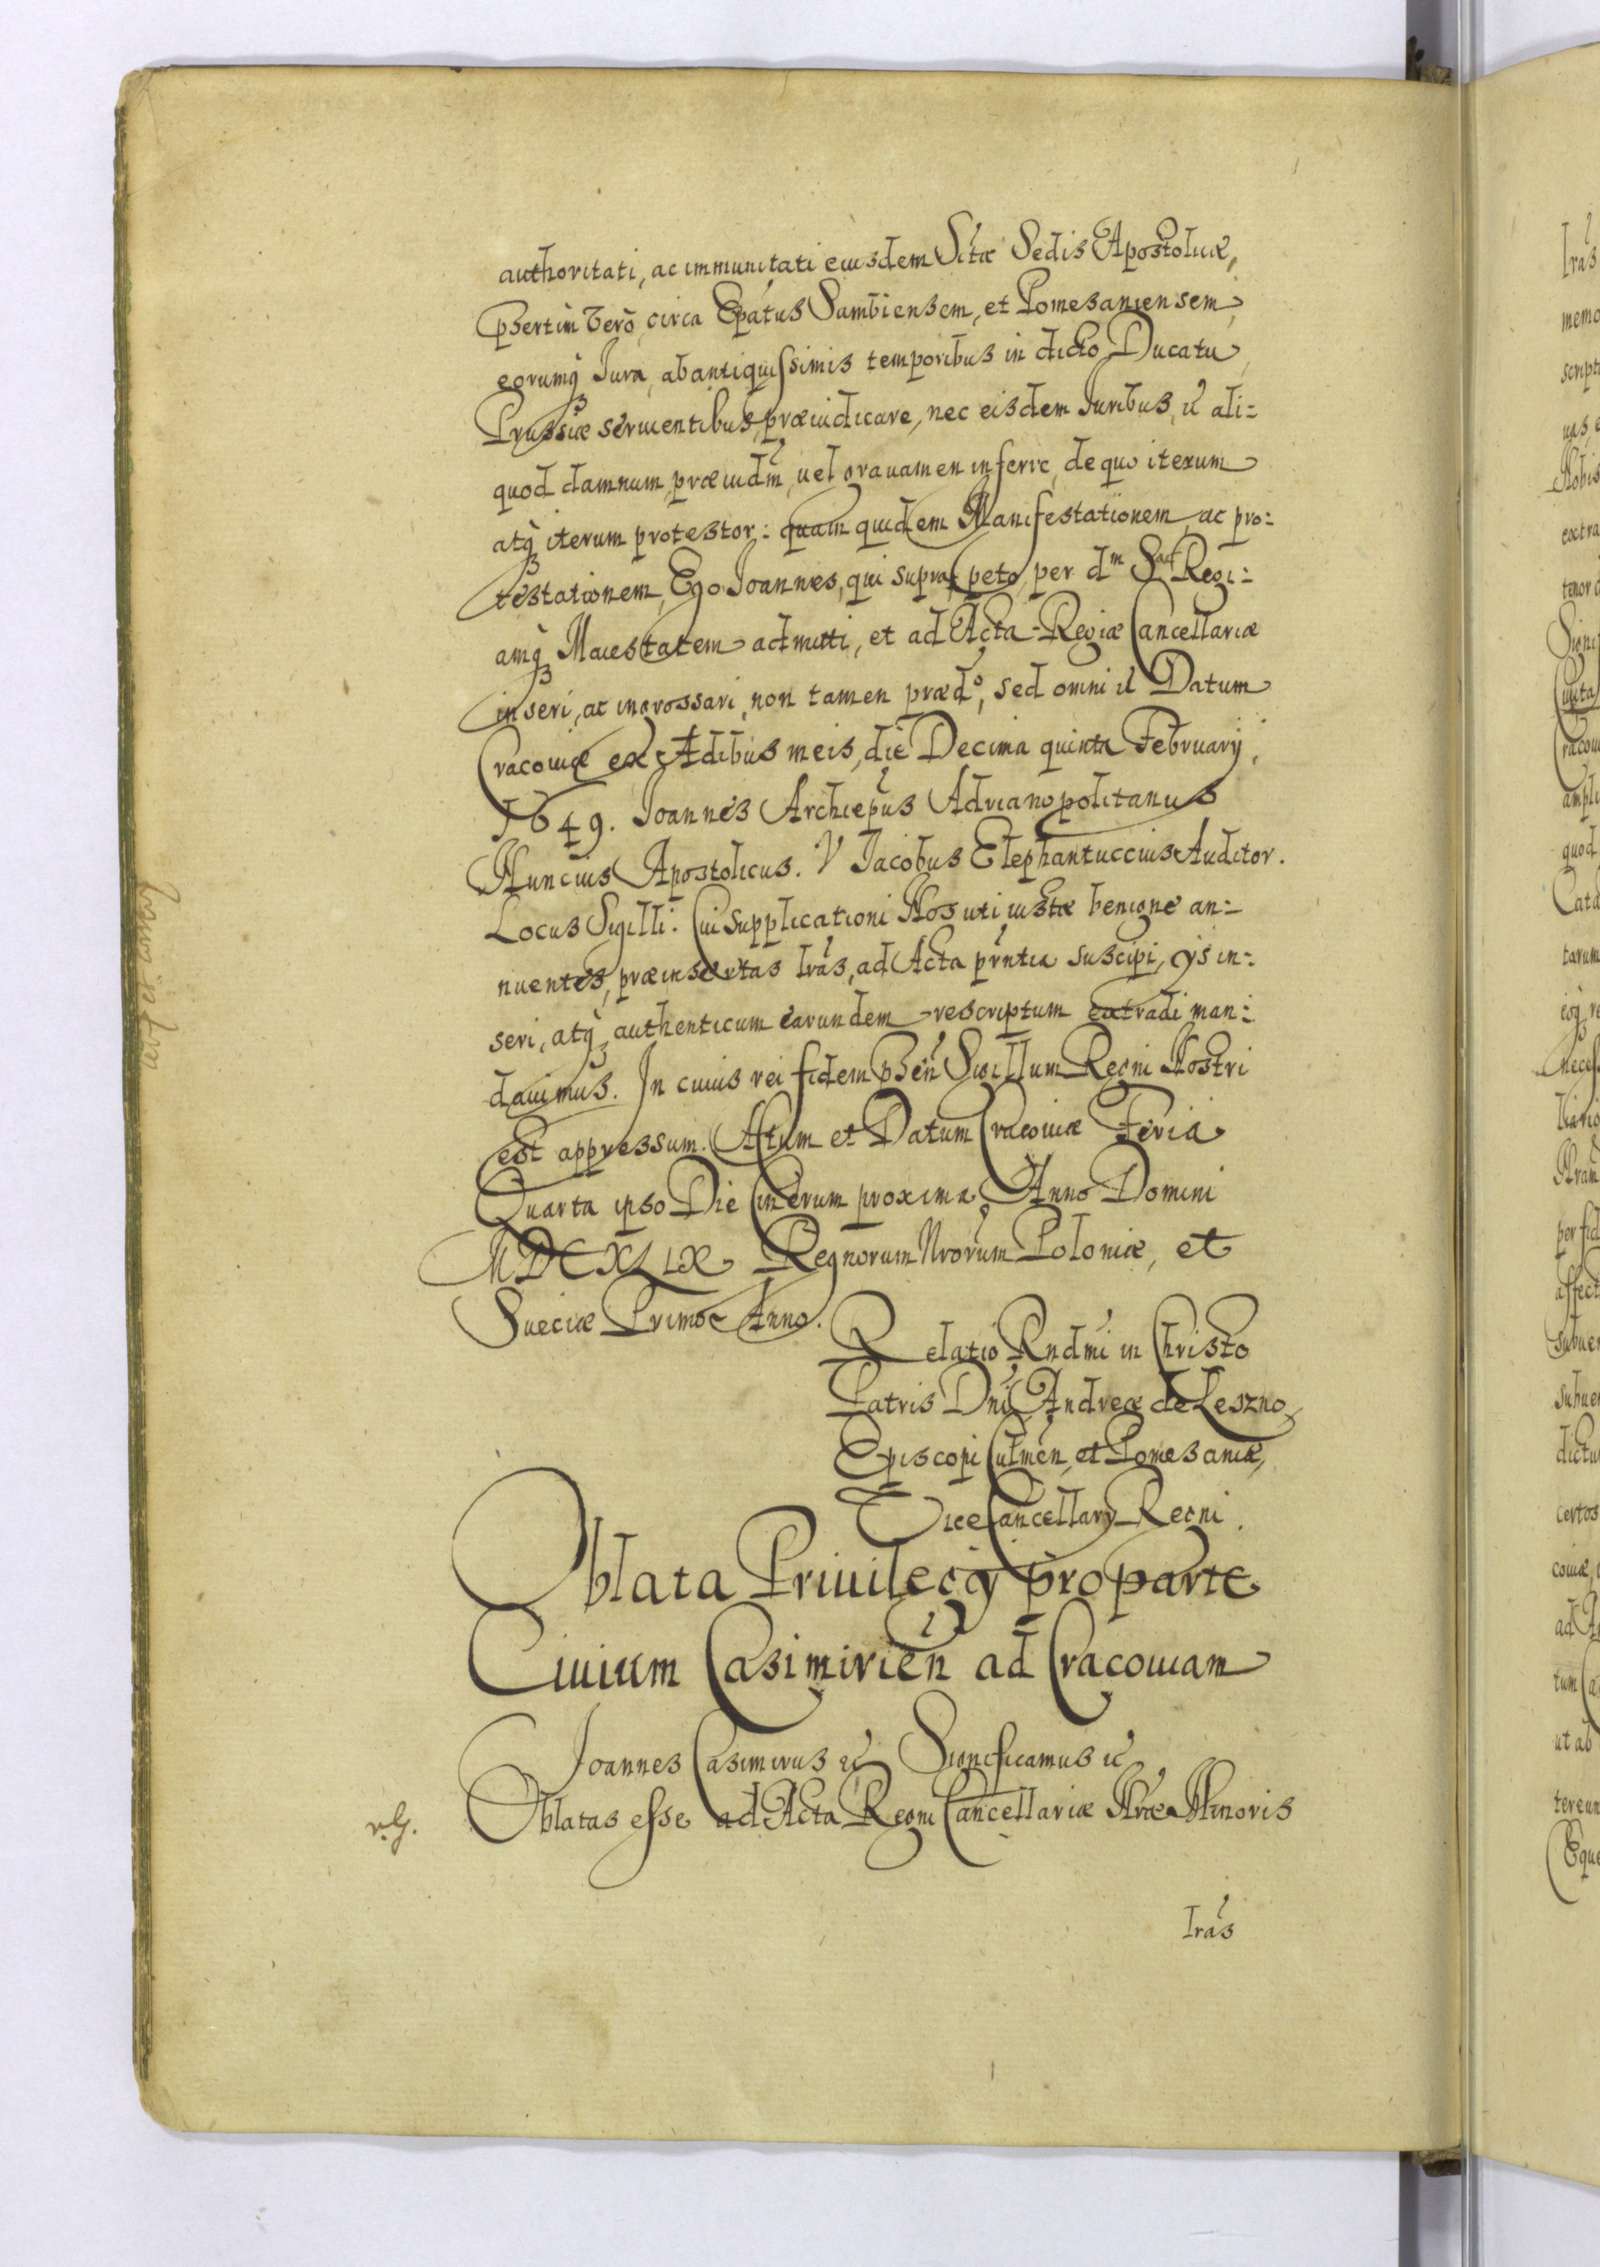 authoritati, ac immunitati eiusdem Sctæ Sedis Apostolicæ,
pSertim verò circa Epatus Sambiensem, et Pomesaniensem,
eorumq Jura, ab antiquissimis temporibus in dicto Ducatu
Prussiæ seruientibus præiudicare, nec eisdem Juribus, ut ali=
quod damnum, præiudm, uel grauamen inferre, de quo iterum
atq iterum protestor: quam quidem Manifestationem, ac pro=
testationem, Ego Joannes, qui supra, peto, per dm Sac Regi=
amq Maiestatem admitti, et ad Acta Regiæ Cancellariæ
inseri, ac ingrossari, non tamen prædo, sed omni
Datum
Cracouiæ ex Ædibus meis, die Decima quinta February,
1649. Joannes Archiepus Adrianopolitanus
Nuncius Apostolicus. V Jacobus Elephantuccius Auditor.
Locus Sigilli. Cui supplicationi Nos uti iustæ benigne an=
nuentes, præinsertas lras, ad Acta prntia suscipi, ijs in=
seri, atq authenticum earundem rescriptum extradi man=
dauimus. In cuius rei fidem pSen Sigillum Regni Nostri
est appressum. Actum et Datum Cracouiæ Feria
Quarta ipso Die Cinerum proxima, Anno Domini
MDCXLIX Regnorum Nrorum Poloniæ, et
Sueciæ Primo Anno.
Relatio Rndmi in Christo
Patris Dni Andreæ de Leszno
Episcopi Culmen, et Pomesaniæ,
Vice Cancellary Regni.
Oblata Priuilegij pro parte
Ciuium Casimirien ad Cracouiam
Joannes Casimirus etc Significamus etc
r.G. Oblatas esse ad Acta Regni Cancellariæ Nræ Minoris
lras